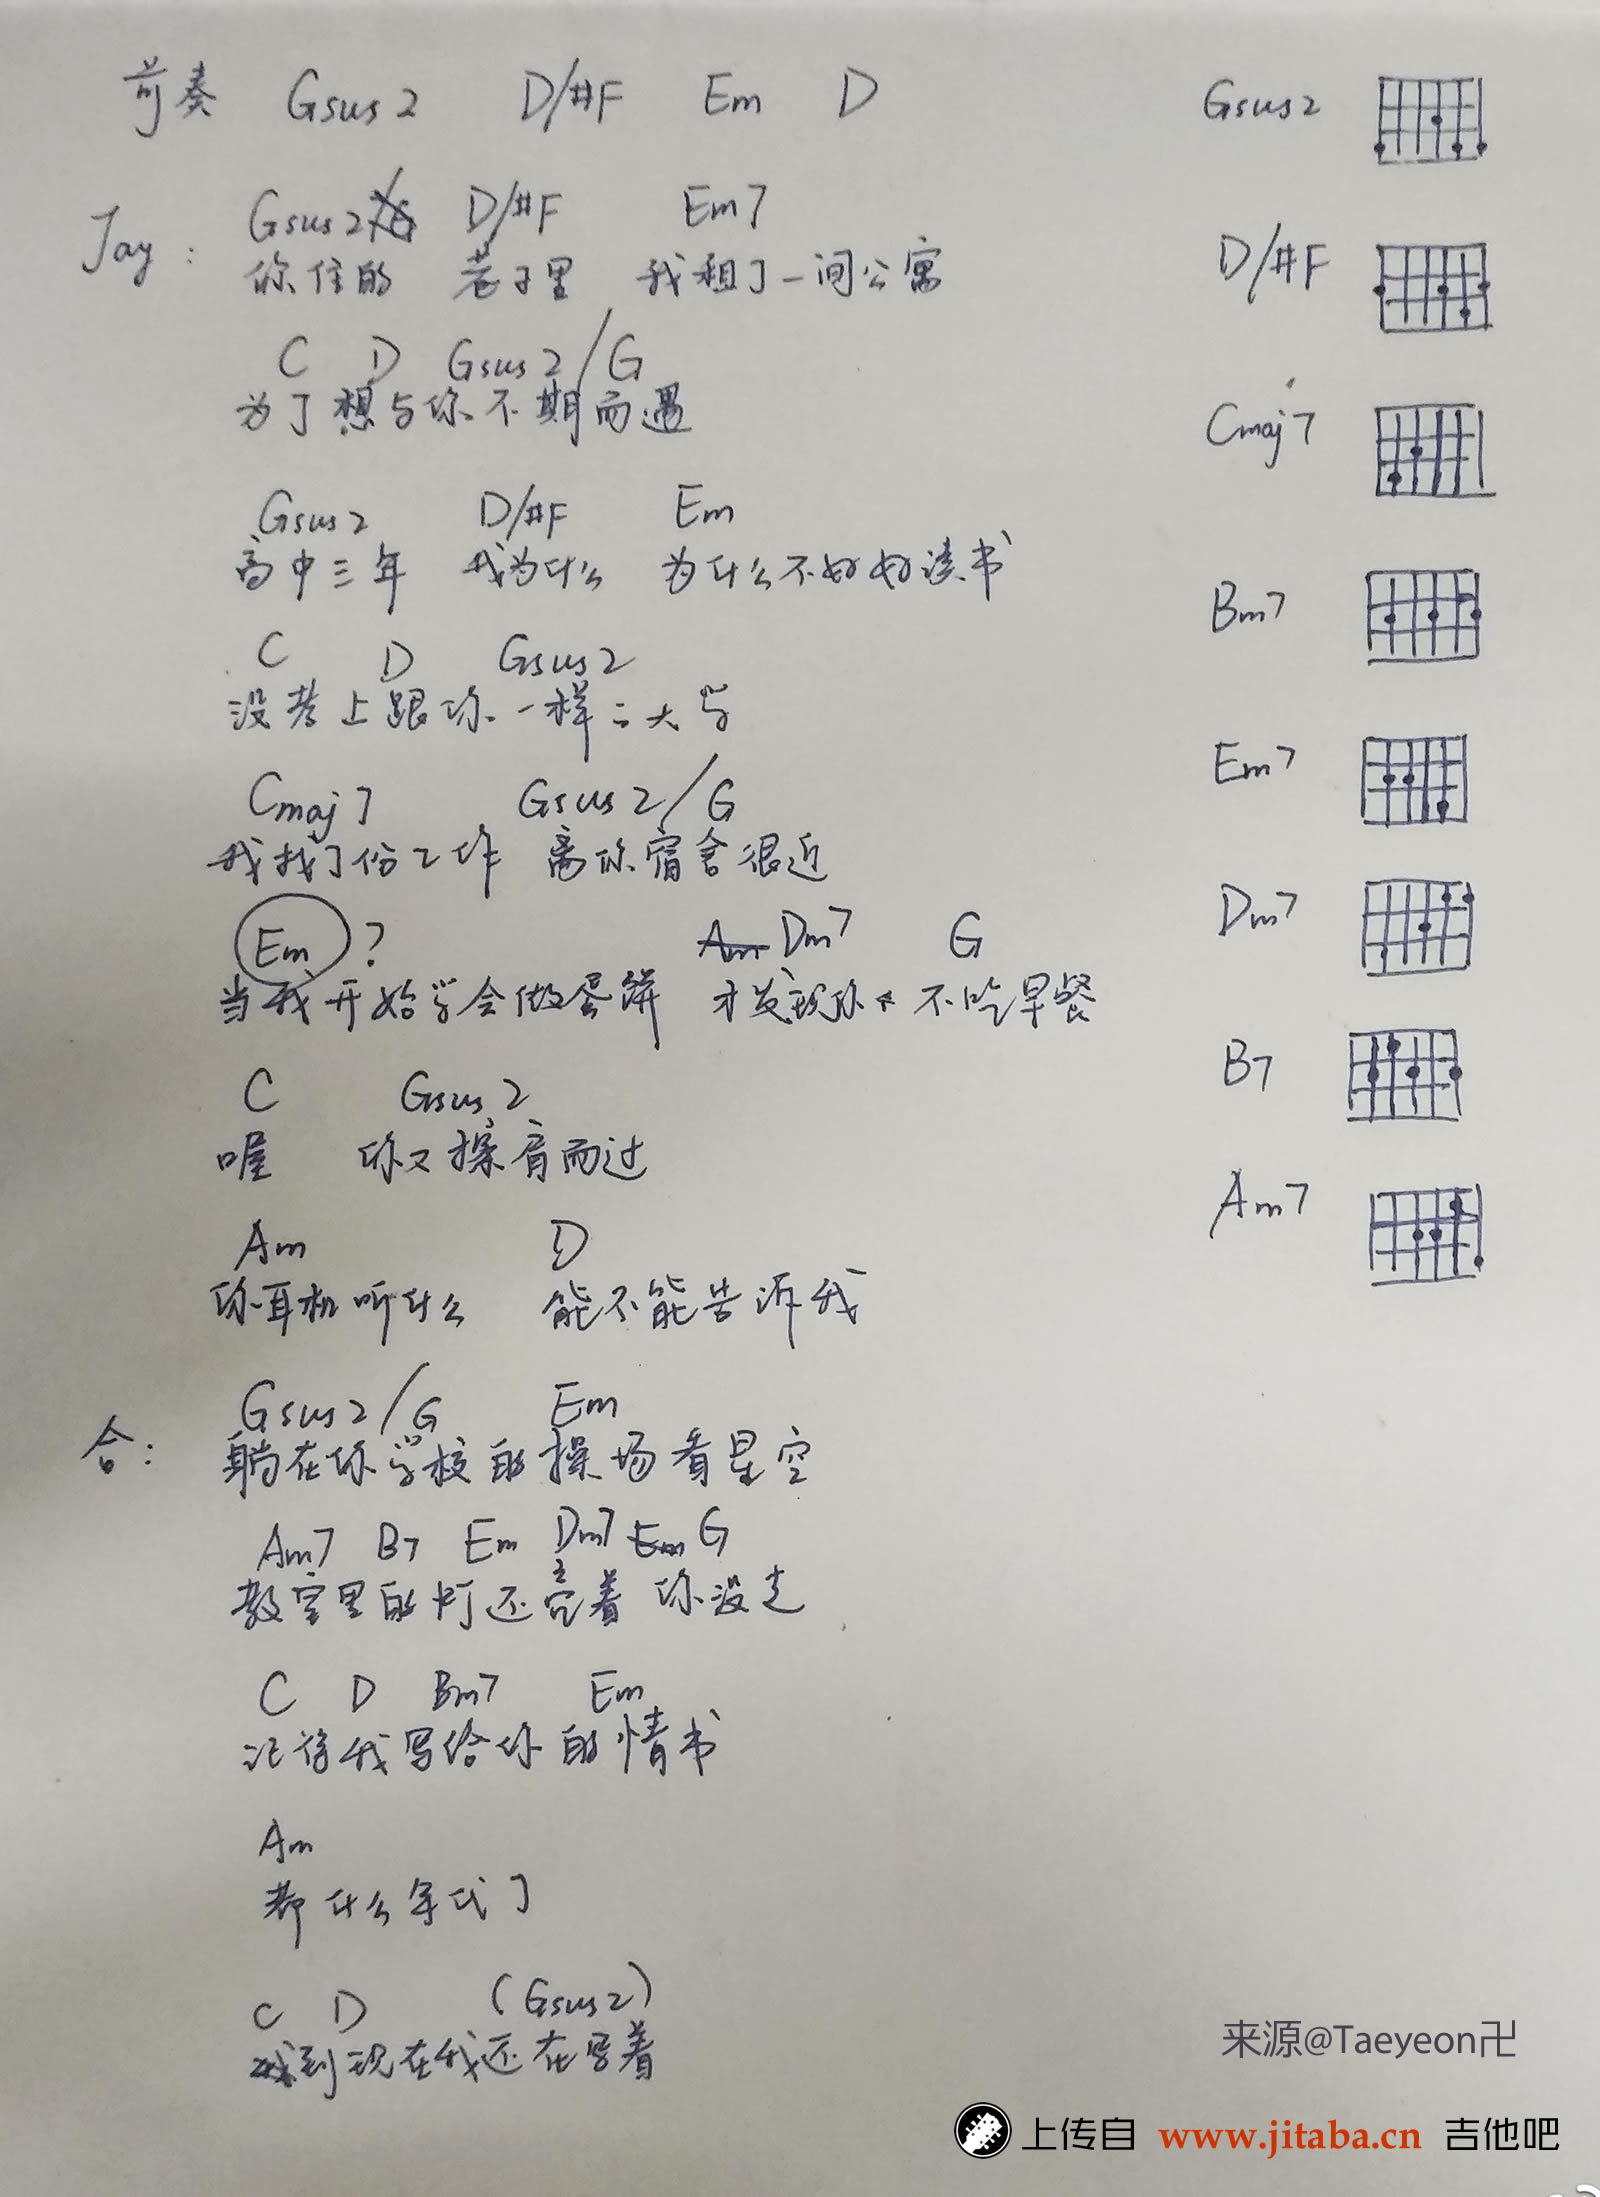 前奏 Gsus2 D/#F Em D
Jay: Gsus2 D/#F Em7
你住的 巷子里 我租了一间公寓
C D Gsus2/G
为了想与你不期而遇
Gsus2 D/#F Em
高中三年 我为什么 为什么不好好读书
C D Gsus2
没考上跟你一样的大学
Cmaj7 Gsus2/G
我找了份工作 离你宿舍很近
Em? Am Dm7 G
当我开始学会做蛋饼 才发现你 不吃早餐
C Gsus2
喔 你又擦肩而过
Am D
你耳机听什么 能不能告诉我
合: Gsus2/G Em
躺在你学校的操场看星空
Am7 B7 Em Dm7 Em G
教室里的灯还亮着 你没走
C D Bm7 Em
记得我写给你的情书
Am
都什么年代了
C D (Gsus2)
到现在我还在写着
Gsus2
D/#F
Cmaj7
Bm7
Em7
Dm7
B7
Am7
来源@Taeyeon卍
上传自 www.jitaba.cn 吉他吧